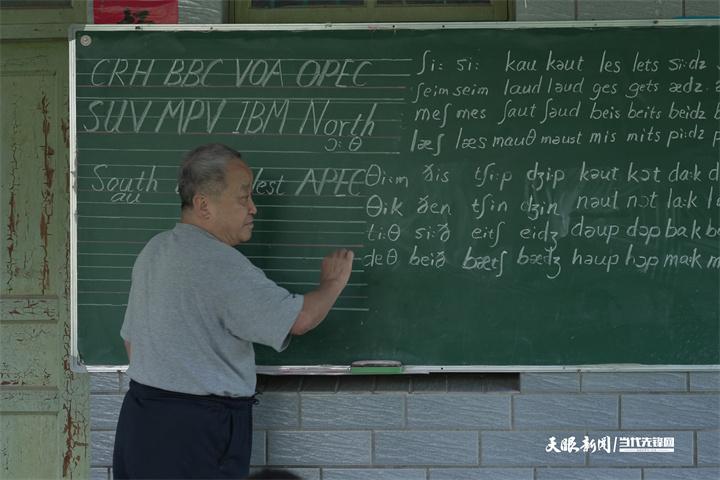 CRH BBC VOA OPEC
SUV MPV IBM North
ɔ: θ
South West APEC
au
ʃi: si: kau kəut les lets si:dz
seim seim laud ləud ges gets ædz
meʃ mes ʃaut ʃəud beis beits beidz
læʃ læs mauθ məust mis mits pi:dz
θi:m ðis tʃi:p dʒip kəut kɔt da:k
θik ðen tʃin dʒin nəut nɔt la:k
ti:θ si:ð eitʃ eidʒ dəup dɔp bak
deθ beið bætʃ bædʒ həup hɔp ma:k
天眼新闻 当代先锋网